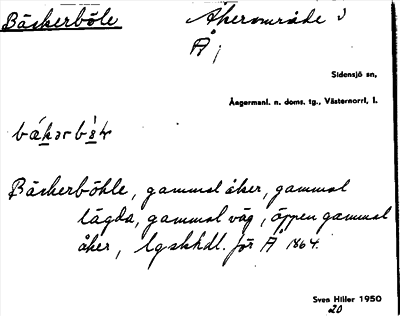 Bäckerböle Åkerområde i
Å,
Sidensjö sn,
Ångermanl. n. doms. tg., Västernorrl. l.
Bäckerböhle, gammal åker, gammal
lägda, gammal väg, öppen gammal
åker, lgskhdl. för Å 1864.
Sven Hiller 1950
20